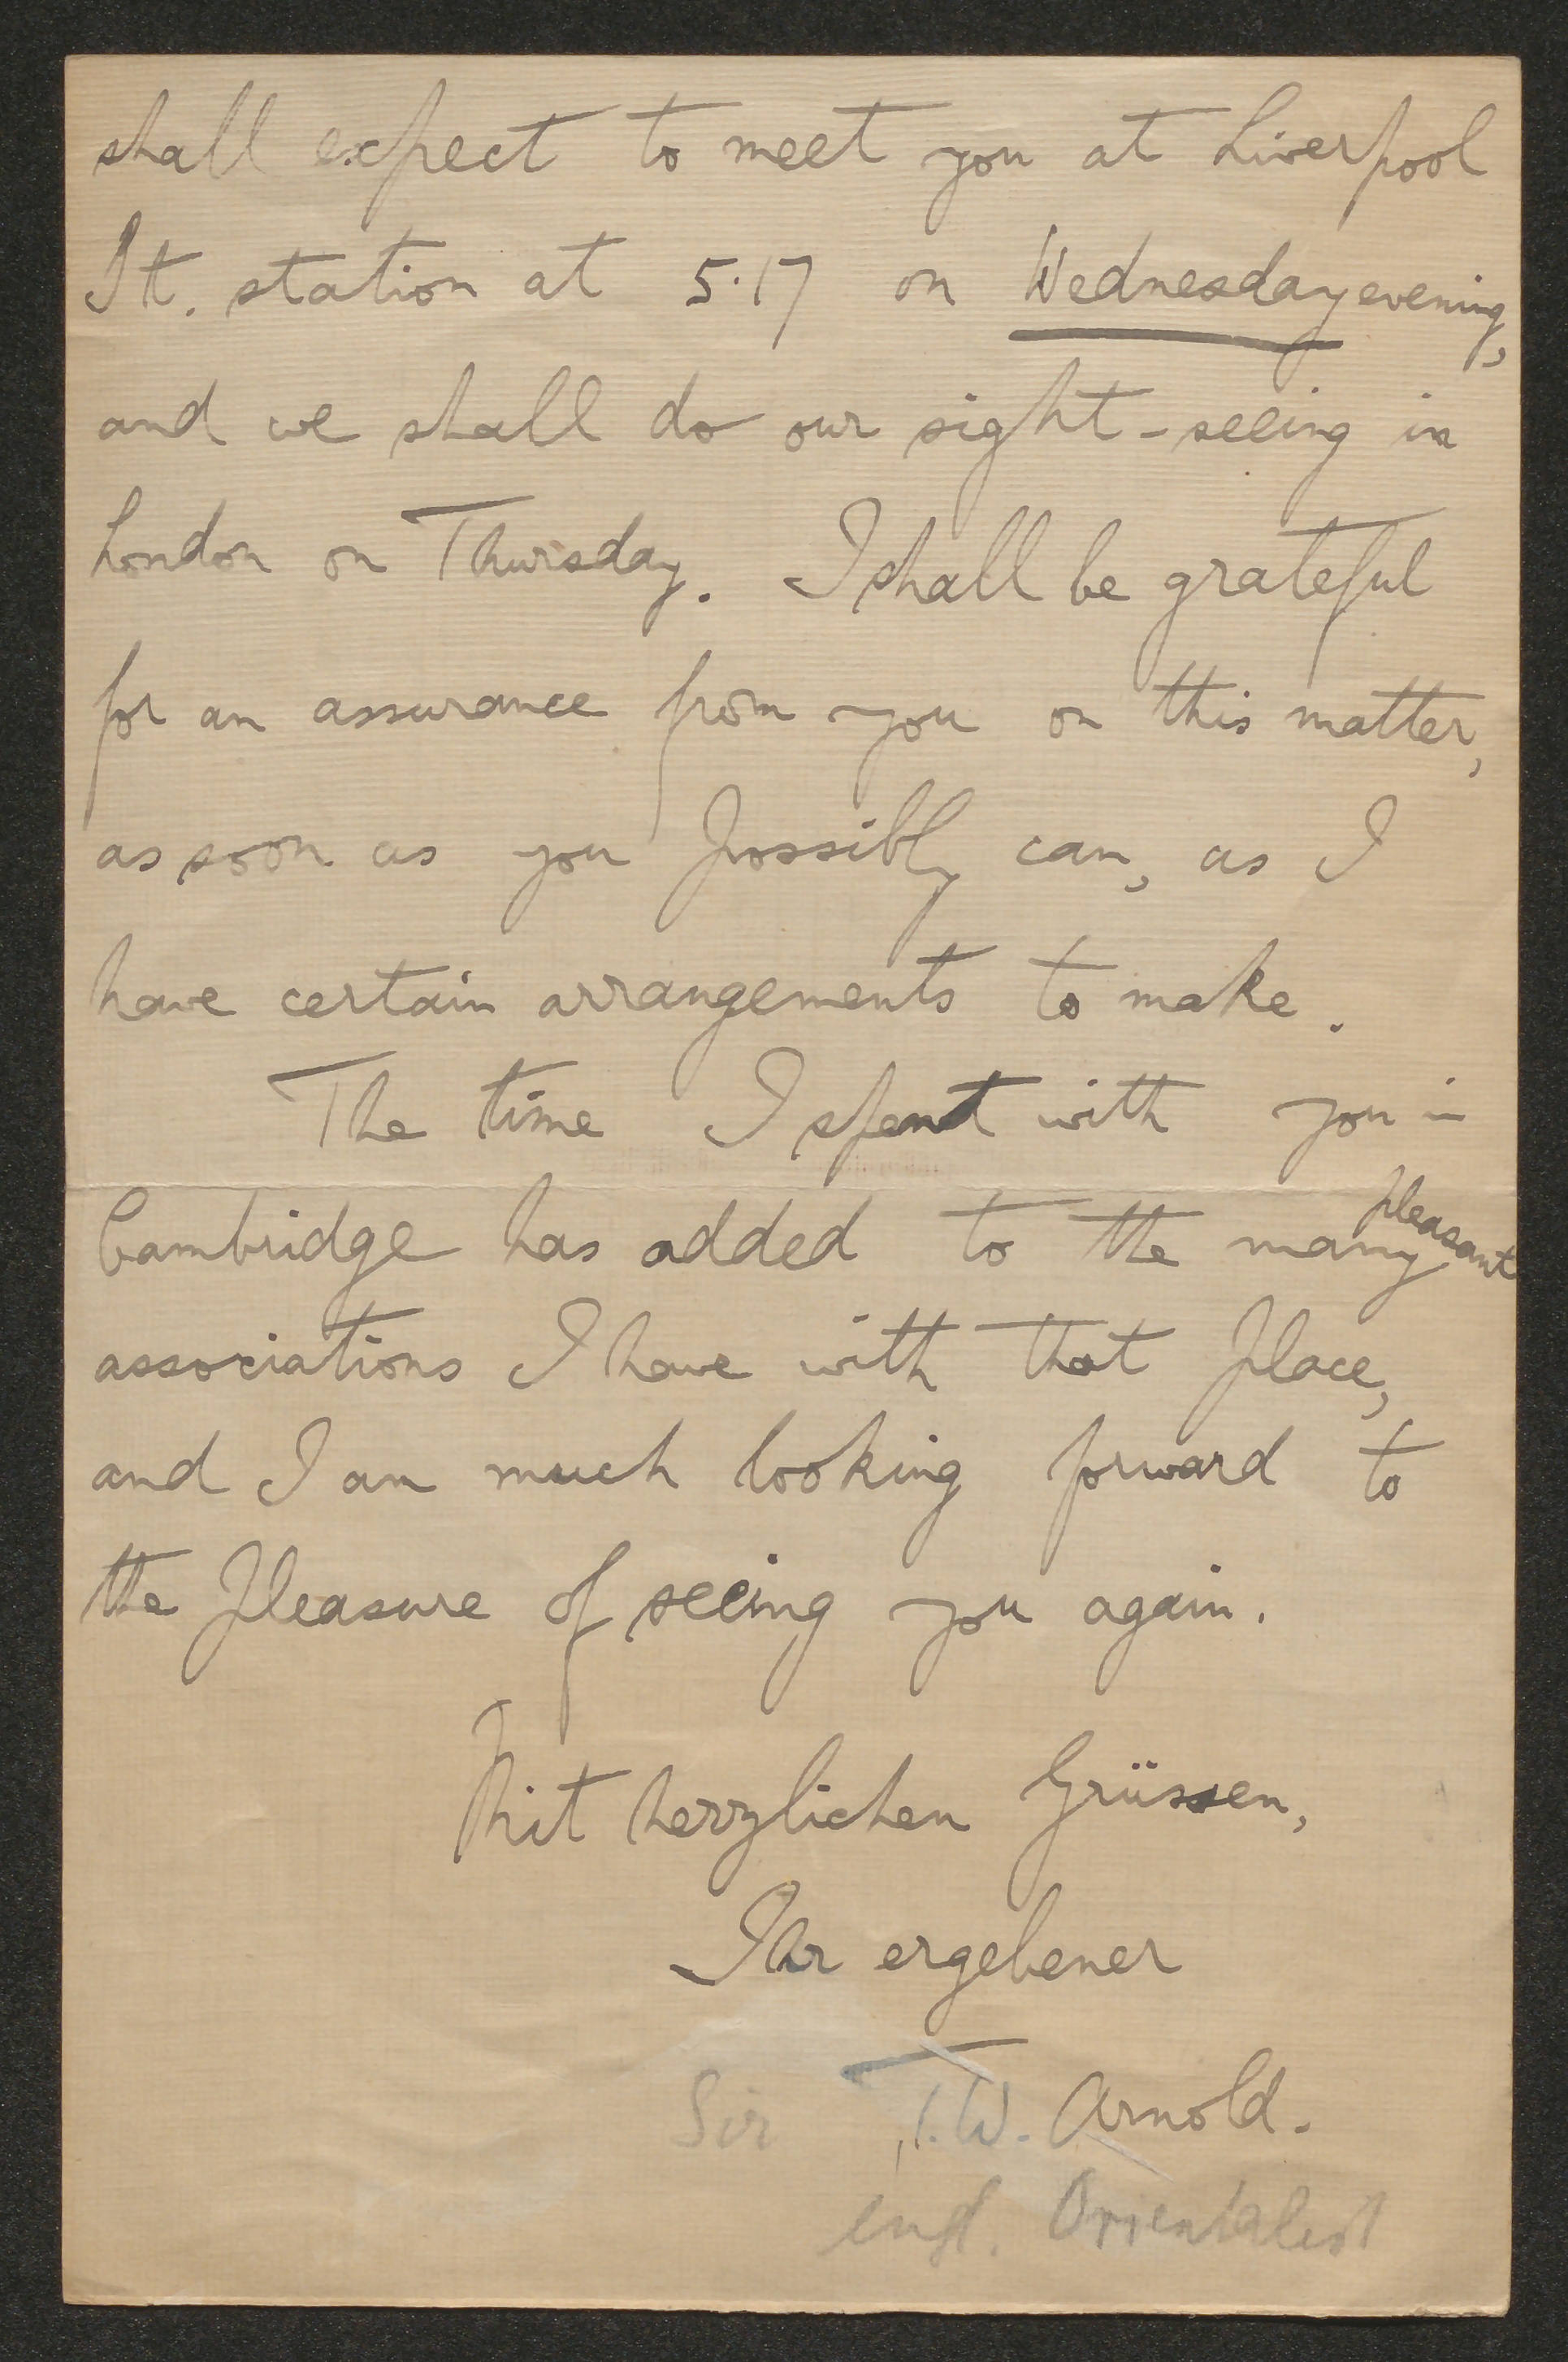 shall expect to meet you at Liverpool
St. station at 5.17 on Wednesday evening,
and we shall do our sight-seeing in
London on Thursday. I shall be grateful
for an assurance from you on this matter,
as soon as you possibly can, as I
have certain arrangements to make.
The time I spent with you in
Cambridge has added to the many pleasant
associations I have with that place,
and I am much looking forward to
the pleasure of seeing you again.
Mit herzlichen Grüssen,
Ihr ergebener
Sir T. W. Arnold.
engl. Orientalist